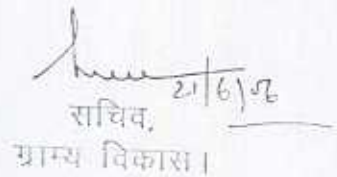 21/6/06
सचिव,
ग्राम्य विकास।